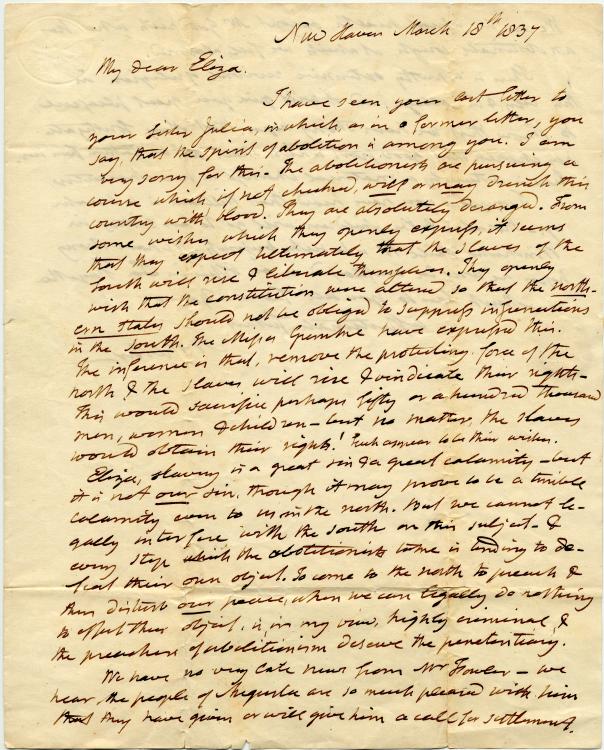 New Haven March 18th 1837
My dear Eliza.
I have seen your last letter to
your Sister Julia, in which, as in a former letter, you
say, that the spirit of abolition is among you. I am
very sorry for this - The abolitionists are pursuing a
course which if not checked, will or may drench this
country with blood. They are absolutely deranged. From
some wishes, which they openly express, it seems
that they expect ultimately that the slaves of the
South will rise & liberate themselves. They openly
wish that the constitution were altered so that the north-
ern States should not be obliged to suppress insurrections
in the South. The Misses Grimke have expressed this.
The inference is that, remove the protecting force of the
north & the slaves will rise & vindicate their rights -
This would sacrifice perhaps fifty or a hundred thousand
men, women & children - but no matter, the slaves
would obtain their rights! Such appear to be their wishes.
Eliza, slavery is a great sin & a great calamity - but
it is not our sin, though it may prove to be a terrible
calamity even to us in the north. But we cannot le-
gally interfere with the south on this subject - &
every step which the abolitionists take is tending to de-
feat their own object. To come to the north to preach &
thus disturb our peace, when we can legally do nothing
to effect their object, is, in my view, highly criminal, &
the preachers of abolitionism deserve the penitentiary.
We have no very late news from Mr Fowler - we
hear, the people of Augusta are so much pleased with him
that they have given or will give him a call for settlement.